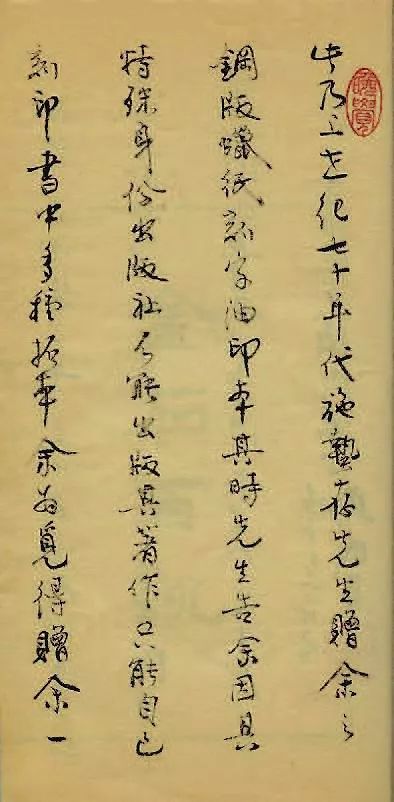 此乃上世纪七十年代施蟄存先生贈余之
鋼版蠟纸刻字油印本其時先生告余因其
特殊身份出版社不能出版其著作只能自己
刻印書中多種拓本余為覓得贈余一